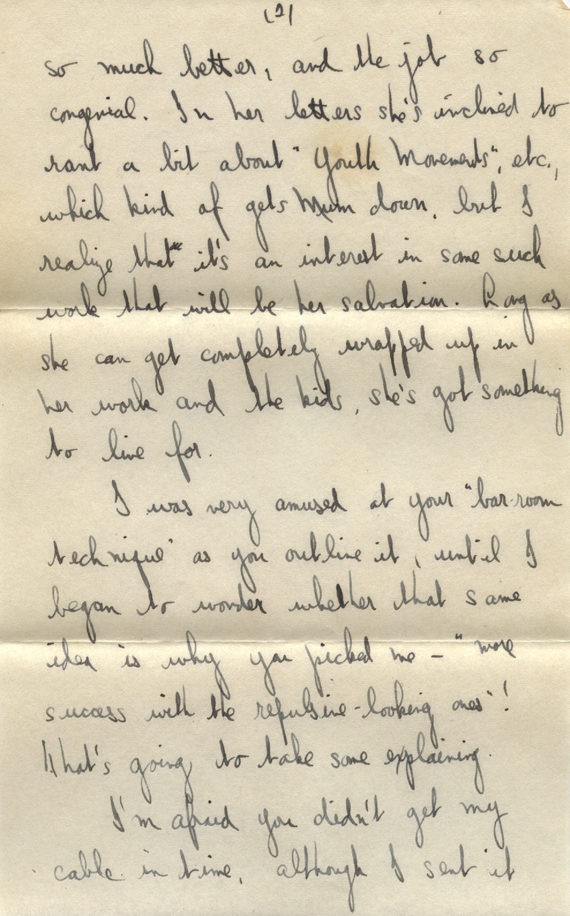 (2)
so much better, and the job so
congenial. In her letters she's inclined to
rant a bit about "Youth Movements", etc.,
which kind of gets Mum down, but I
realize that it's an interest in some such
work that will be her salvation. Long as
she can get completely wrapped up in
her work and the kids, she's got something
to live for.
I was very amused at your "bar-room
technique" as you outline it, until I
began to wonder whether that same
idea is why you picked me – "more
success with the repulsive-looking ones"!
That's going to take some explaining.
I'm afraid you didn't get my
cable in time, although I sent it